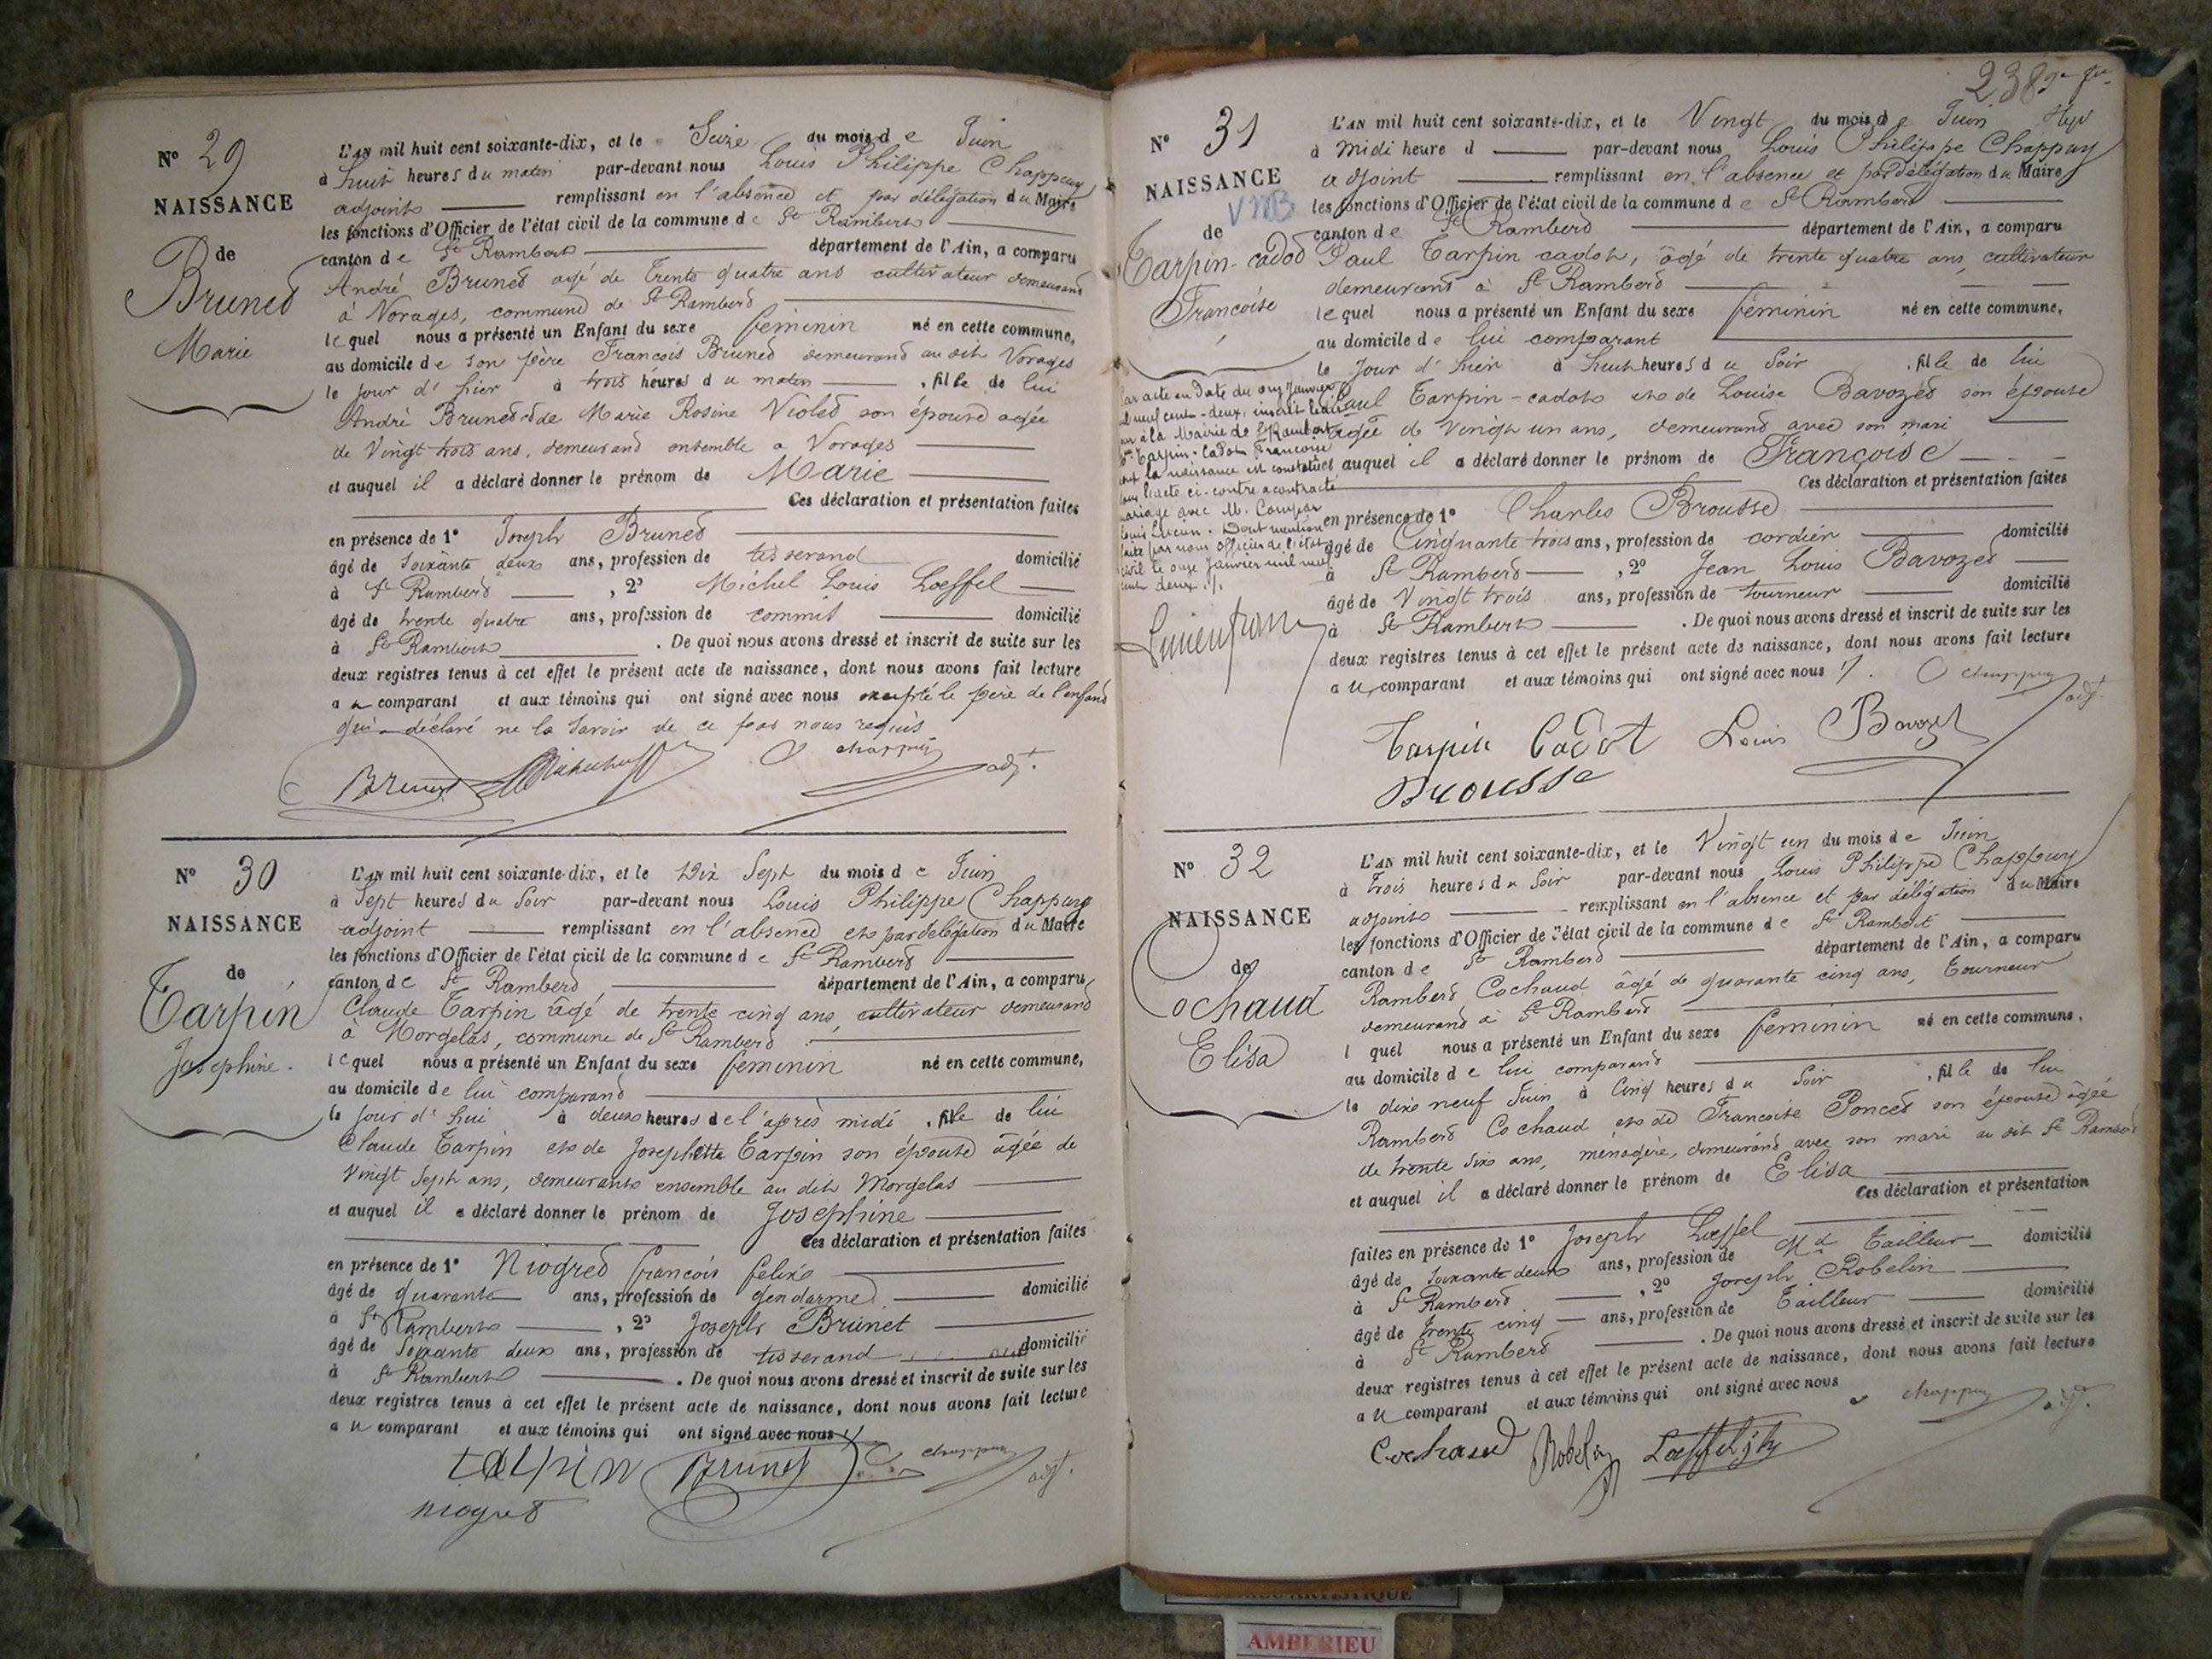 N° 29
NAISSANCE
de
Brunet
Marie
L'AN mil huit cent soixante-dix, et le Seize du mois de Juin
à huit heures du matin par-devant nous Louis Philippe Chappuy
adjoint remplissant en l'absence et par délégation du Maire
les fonctions d'Officier de l'état civil de la commune de St Rambert
canton de St Rambert département de l'Ain, a comparu
André Brunet agé de Trente quatre ans cultivateur demeurant
à Vorages, commune de St Rambert
lequel nous a présenté un Enfant du sexe féminin né en cette commune,
au domicile de son père François Brunet demeurant au dit Vorages
le jour d'hier à trois heures du matin, fille de lui
André Brunet et de Marie Rosine Violet son épouse agée
de Vingt trois ans, demeurant ensemble a Vorages
et auquel il a déclaré donner le prénom de Marie
Ces déclaration et présentation faites
en présence de 1° Joseph Brunet
âgé de Soixante deux ans, profession de tisserand domicilié
à St Rambert, 2° Michel Louis Loeffel
âgé de trente quatre ans, profession de commis domicilié
à St Rambert. De quoi nous avons dressé et inscrit de suite sur les
deux registres tenus à cet effet le présent acte de naissance, dont nous avons fait lecture
au comparant et aux témoins qui ont signé avec nous excepté le père de l'enfant
qui a déclaré ne la savoir de ce fas nous requis
Brunet chappuy adjt.
N° 30
NAISSANCE
de
Tarpin
Josephine.
L'AN mil huit cent soixante-dix, et le Dix Sept du mois de Juin
à Sept heures du Soir par-devant nous Louis Philippe Chappuy
adjoint remplissant en l'absence et par délégation du Maire
les fonctions d'Officier de l'état civil de la commune de St Rambert
canton de St Rambert département de l'Ain, a comparu
Claude Tarpin âgé de trente cinq ans, cultivateur demeurant
à Morgelas, commune de St Rambert
lequel nous a présenté un Enfant du sexe feminin né en cette commune,
au domicile de lui comparant
le jour d'hui à deux heures de l'après midi, fille de lui
Claude Tarpin et de Josephette Tarpin son épouse âgée de
Vingt Sept ans, demeurant ensemble au dit Morgelas
et auquel il a déclaré donner le prénom de Josephine
Ces déclaration et présentation faites
en présence de 1° Niogret françois felix
âgé de quarante ans, profession de gendarme domicilié
à St Rambert, 2° Joseph Brunet
âgé de Soixante deux ans, profession de tisserand domicilié
à St Rambert. De quoi nous avons dressé et inscrit de suite sur les
deux registres tenus à cet effet le présent acte de naissance, dont nous avons fait lecture
au comparant et aux témoins qui ont signé avec nous
tarpin Brunet chappuy adjt.
niogret
238
N° 31
NAISSANCE
de
Tarpin-cadot
Françoise
L'AN mil huit cent soixante-dix, et le Vingt du mois de Juin
à Midi heure d par-devant nous Louis Philippe Chappuy
adjoint remplissant en l'absence et par délégation du Maire
les fonctions d'Officier de l'état civil de la commune de St Rambert
canton de St Rambert département de l'Ain, a comparu
Paul Tarpin cadot, âgé de trente quatre ans, cultivateur
demeurant à St Rambert
lequel nous a présenté un Enfant du sexe féminin né en cette commune,
au domicile de lui comparant
le Jour d'hier à huit heures du Soir, fille de lui
Paul Tarpin-cadot et de Louise Bavozet son épouse
agée de vingt un ans, demeurant avec son mari
et auquel il a déclaré donner le prénom de Françoise
Ces déclaration et présentation faites
en présence de 1° Charles Brousse
âgé de Cinquante trois ans, profession de cordier domicilié
à St Rambert, 2° Jean Louis Bavozet
âgé de Vingt trois ans, profession de tourneur domicilié
à St Rambert. De quoi nous avons dressé et inscrit de suite sur les
deux registres tenus à cet effet le présent acte de naissance, dont nous avons fait lecture
au comparant et aux témoins qui ont signé avec nous
chappuy adjt.
Tarpin Cadot Louis Bavozet
Brousse
Par acte en date du onze Janvier
mil neuf cent-deux, inscrit
à la Mairie de St Rambert
Tarpin-Cadot Françoise
dont la naissance est constatée
dans l'acte ci-contre a contracté
mariage avec M.
Louis Lucien. Dont mention
faite par nous Officier de l'état
civil le onze Janvier mil neuf
cent deux
N° 32
NAISSANCE
de
Cochaud
Elisa
L'AN mil huit cent soixante-dix, et le Vingt un du mois de Juin
à trois heures du Soir par-devant nous Louis Philippe Chappuy
adjoint remplissant en l'absence et par délégation du Maire
les fonctions d'Officier de l'état civil de la commune de St Rambert
canton de St Rambert département de l'Ain, a comparu
Rambert Cochaud âgé de quarante cinq ans, Tourneur
demeurant à St Rambert
l quel nous a présenté un Enfant du sexe feminin né en cette commune,
au domicile de lui comparant
le dix neuf Juin à Cinq heures du Soir, fille de lui
Rambert Cochaud et de Françoise Poncet son épouse âgée
de trente six ans, ménagère, demeurant avec son mari au dit St Rambert
et auquel il a déclaré donner le prénom de Elisa
Ces déclaration et présentation
faites en présence de 1° Joseph Loeffel
âgé de Soixante deux ans, profession de Md Tailleur domicilié
à St Rambert, 2° Joseph Robelin
âgé de trente cinq ans, profession de Tailleur domicilié
à St Rambert. De quoi nous avons dressé et inscrit de suite sur les
deux registres tenus à cet effet le présent acte de naissance, dont nous avons fait lecture
au comparant et aux témoins qui ont signé avec nous
chappuy adjt.
Cochaud Robelin Loeffel
ARTISTIQUE
AMBERIEU